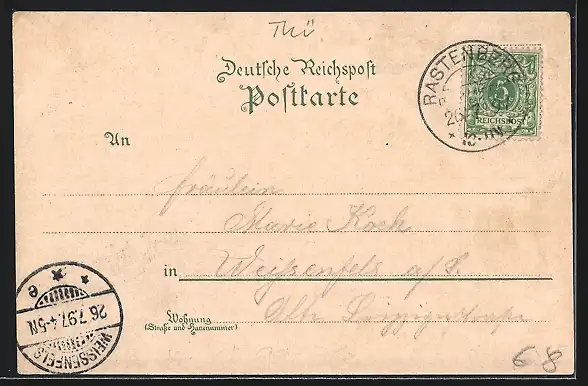 Thü
Deutsche Reichspost
Postkarte
RASTENBERG
26
10-11V
5
REICHSPOST
An
Fräulein
Marie Koch
in Weißenfels a/S.
Wohnung
(Straße und Hausnummer)
Alte Leipzigerstraße
WEISSENFELS
26.7.97.4-5N
e
68